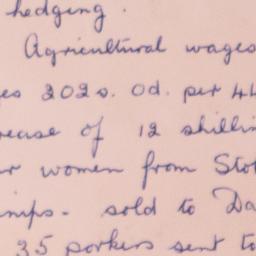 hedging.
Agricultural wages
es 202s. 0d. per 44
rease of 12 shillin
r women from Sto
nips - sold to Da
35 porkers sent to